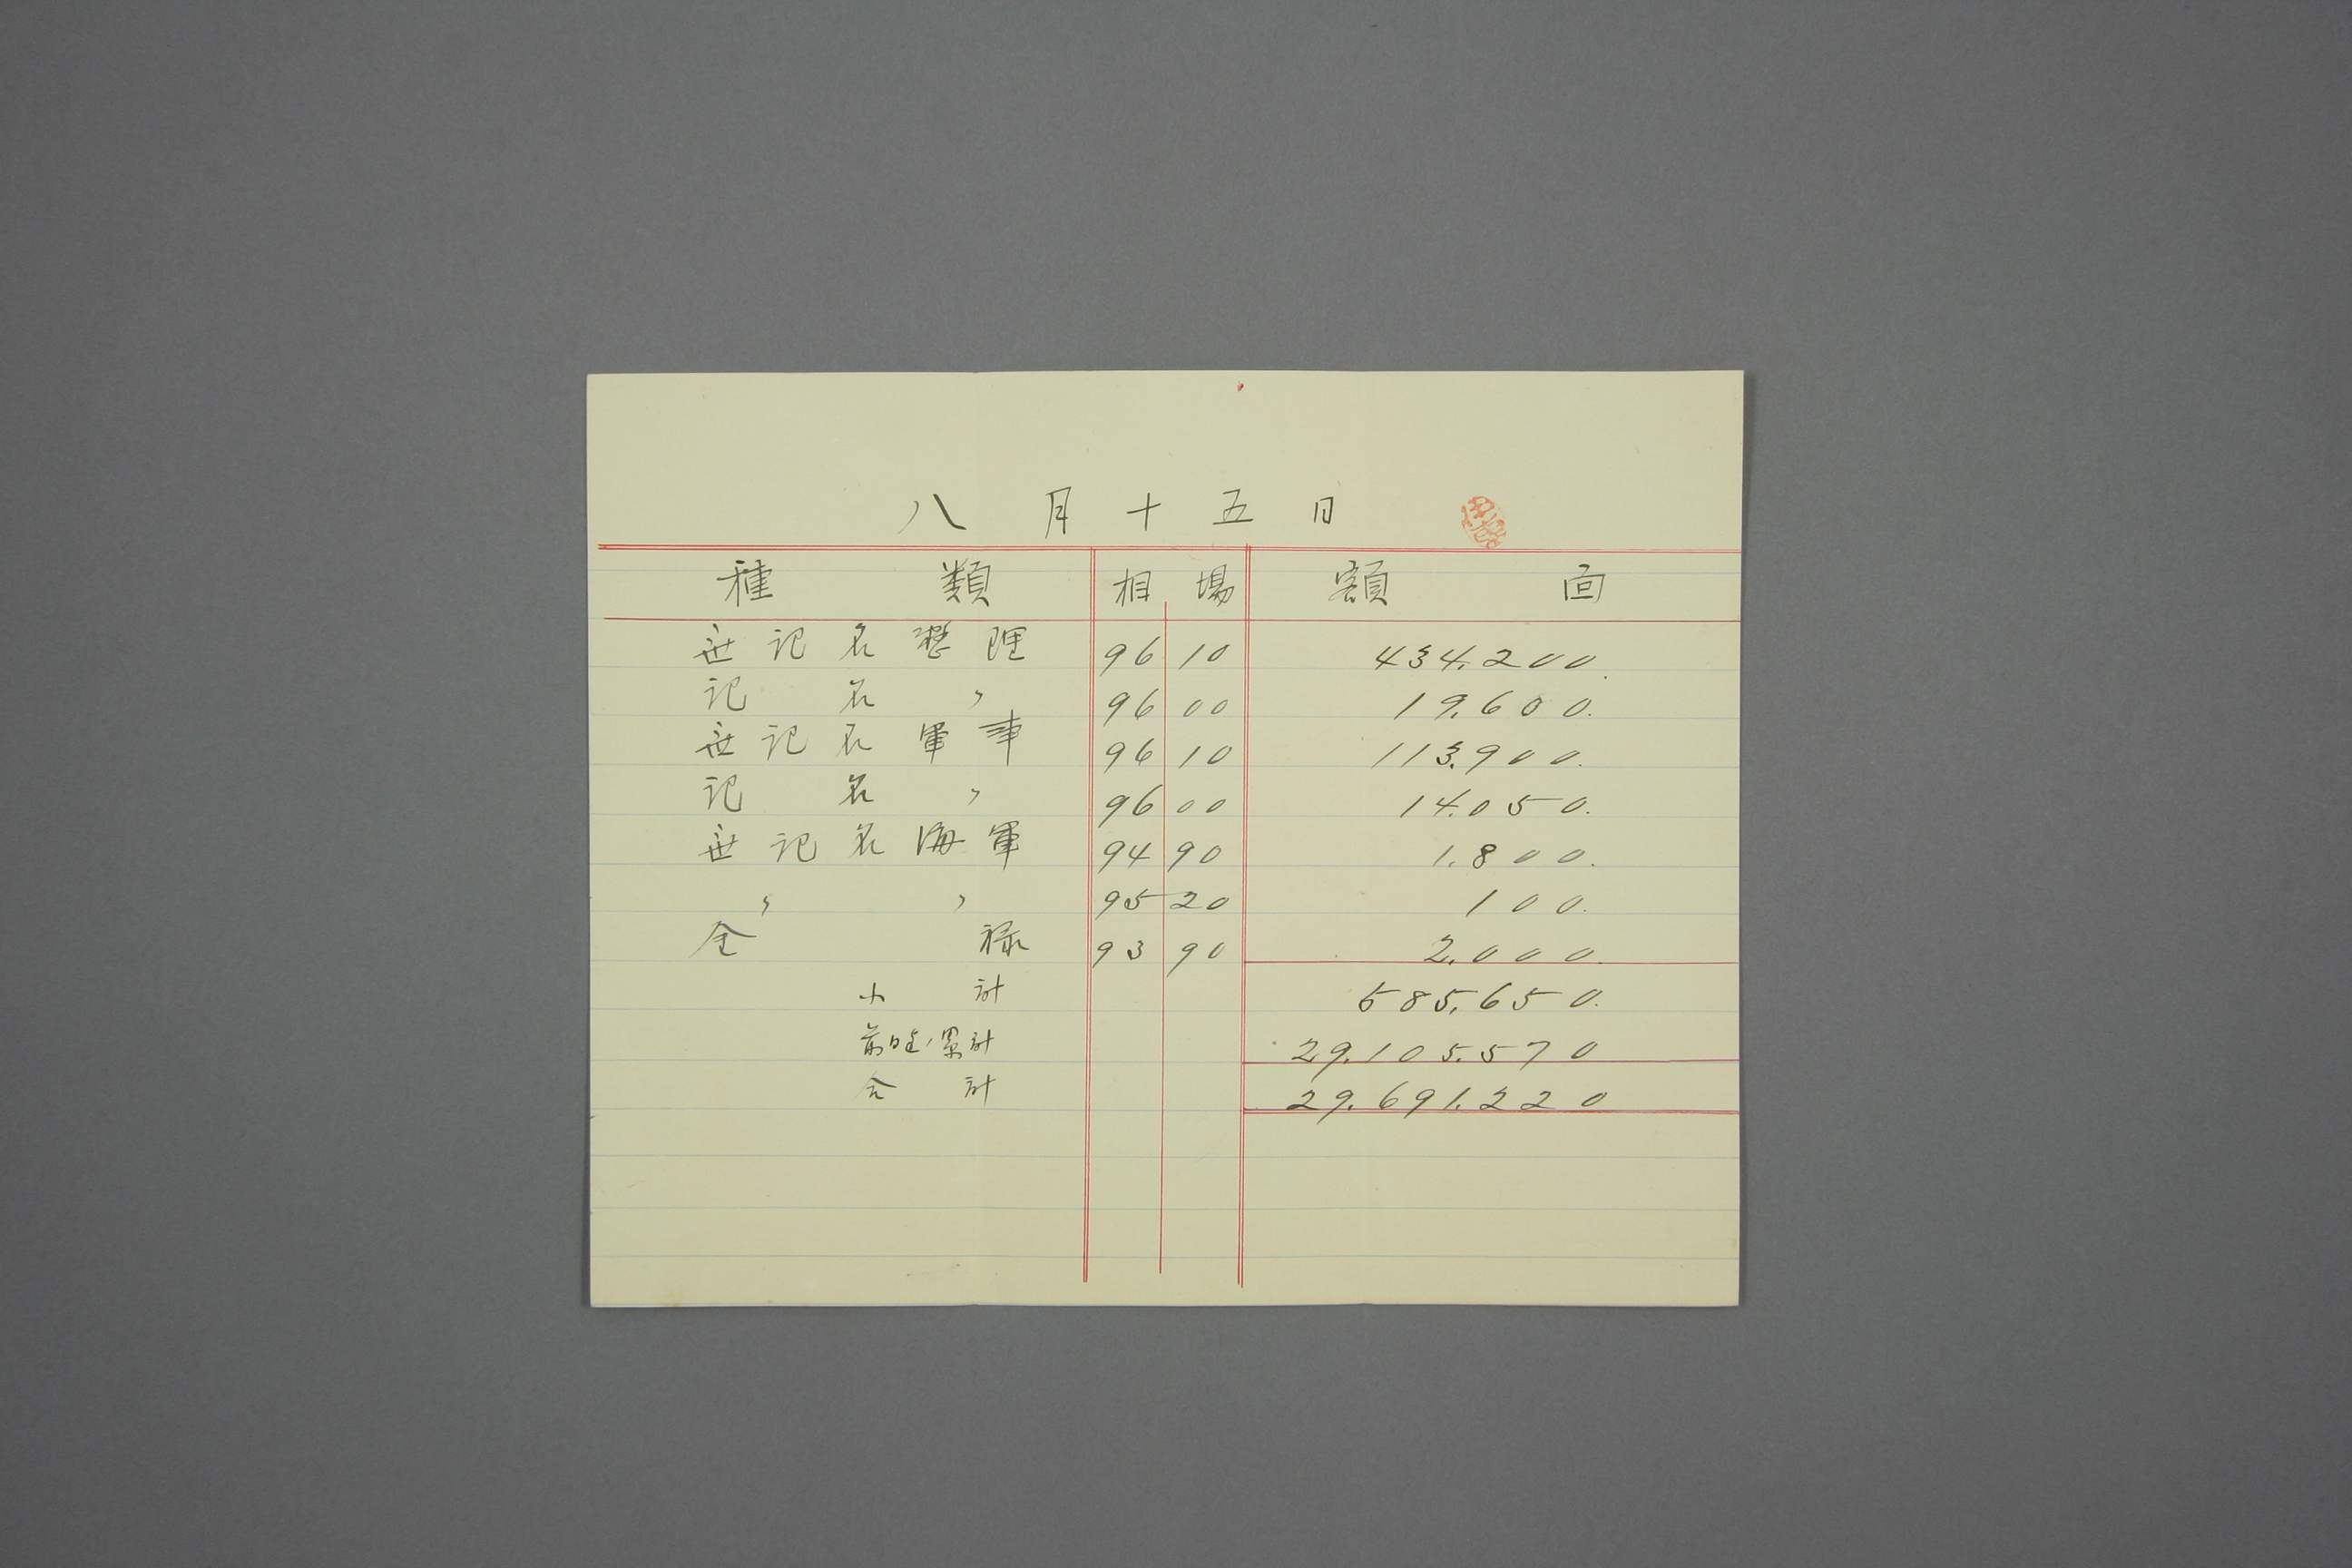 八月十五日
種類 相場 額面
無記名整理 96 10 434.200.
記名〃 96 00 19.600.
無記名軍事 96 10 113.900.
記名〃 96 00 14.050.
無記名海軍 94 90 1.800.
〃〃 95 20 100.
金禄 93 90 2.000.
小計 585.650.
前日迄ノ累計 29.105.570
合計 29.691.220